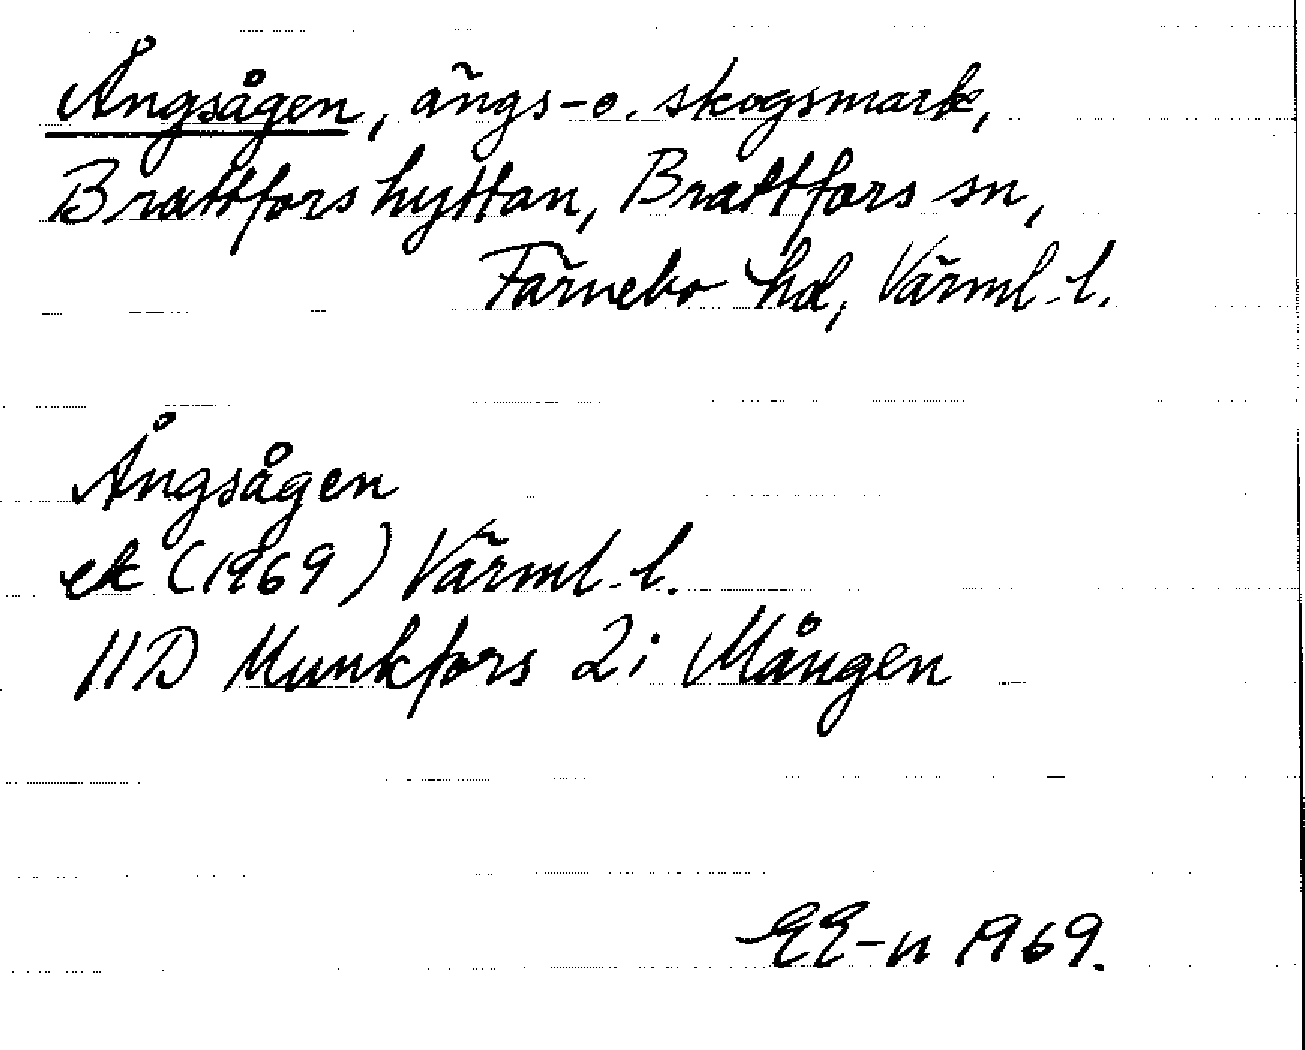 Ångsågen, ängs- o. skogsmark,
Brattforshyttan, Brattfors sn,
Färnebo hd, Värml. l.
Ångsågen
ek (1969) Värml. l.
11D Munkfors 2i Mången
EE-n 1969.